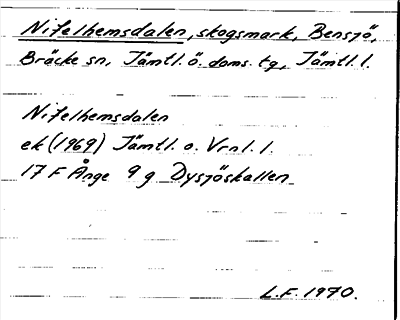 Nifelhemsdalen, skogsmark, Bensjö,
Bräcke sn, Jämtl. ö. doms. tg, Jämtl. l.
Nifelhemsdalen
ek (1969) Jämtl. o. Vrnl. l.
17 F Ånge 9 g Dysjöskallen
L.F. 1970.